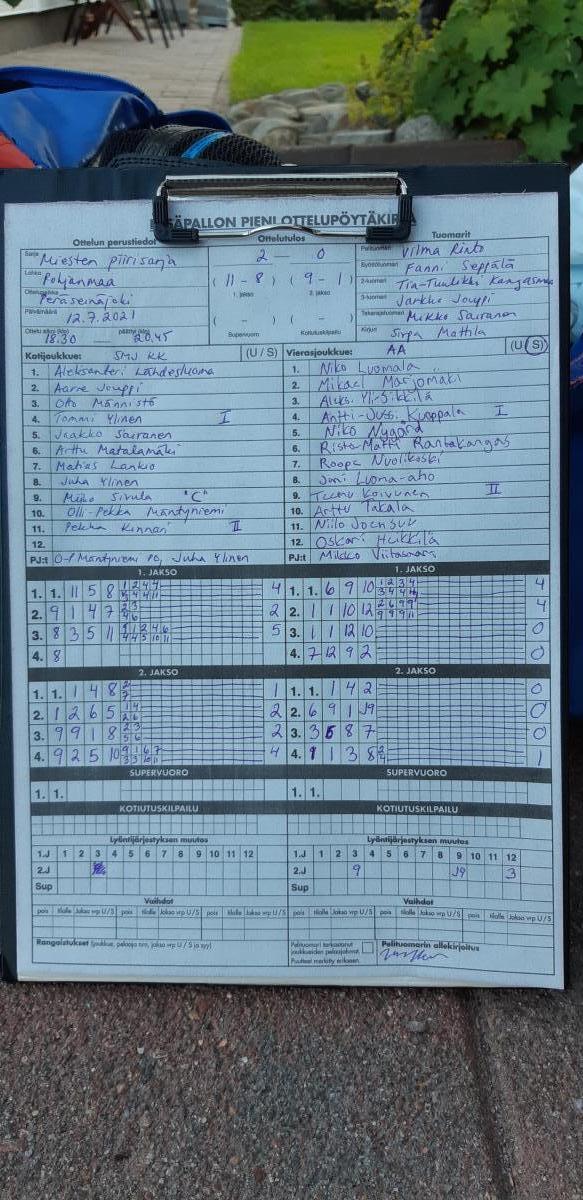 SÄPALLON PIENI OTTELUPÖYTÄKIRJA
Ottelun perustiedot
Sarja Miesten piirisarja
Lohko Pohjanmaa
Ottelupaikka Peräseinäjoki
Päivämäärä 12.7.2021
Ottelu alkoi (klo) 18.30 päättyi (klo) 20.45
Ottelutulos
2 — 0
( 11 - 8 ) ( 9 - 1 )
1. jakso 2. jakso
( - ) ( - )
Supervuoro Kotiutuskilpailu
Tuomarit
Pelituomari Vilma Rinto
Syöttötuomari Fanni Seppälä
2-tuomari Tia-Tuulikki Kangasmaa
3-tuomari Jarkko Jouppi
Takarajatuomari Mikko Sairanen
Kirjuri Sirpa Mattila
Kotijoukkue: SMJ KK (U / S)
1. Aleksanteri Lähdesluoma
2. Aarre Jouppi
3. Otto Männistö
4. Tommi Ylinen I
5. Jaakko Sairanen
6. Arttu Matalamäki
7. Matias Lankio
8. Juha Ylinen
9. Miko Sivula "C"
10. Olli-Pekka Mäntyniemi
11. Pekka Kinnari II
12.
PJ:t O-P Mäntyniemi PJ, Juha Ylinen
Vierasjoukkue: AA (U / S)
1. Niko Luomala
2. Mikael Marjomäki
3. Aleksi Yli-Sikkilä
4. Antti-Jussi Kuoppala I
5. Niko Nygård
6. Risto-Matti Rantakangas
7. Roope Nuolikoski
8. Joni Luoma-aho
9. Teemu Koivunen II
10. Arttu Takala
11. Niilo Joensuu
12. Oskari Heikkilä
PJ:t Mikko Viitasaari
1. JAKSO
1. 1. 11 5 8 4
2. 9 1 4 7 2
3. 8 3 5 11 5
4. 8
1. JAKSO
1. 1. 6 9 10 4
2. 1 1 10 12 4
3. 1 1 12 10 0
4. 7 12 9 2 0
2. JAKSO
1. 1. 1 4 8 1
2. 1 2 6 5 2
3. 9 9 1 8 2
4. 9 2 5 10 4
2. JAKSO
1. 1. 1 4 2 0
2. 6 9 1 J9 0
3. 3 5 8 7 0
4. 1 1 3 8 1
SUPERVUORO
1. 1.
SUPERVUORO
1. 1.
KOTIUTUSKILPAILU
KOTIUTUSKILPAILU
Lyöntijärjestyksen muutos
1.J 1 2 3 4 5 6 7 8 9 10 11 12
2.J
Sup
Lyöntijärjestyksen muutos
1.J 1 2 3 4 5 6 7 8 9 10 11 12
2.J 9 J9 3
Sup
Vaihdot
pois tilalle Jakso vrp U / S pois tilalle Jakso vrp U / S pois tilalle Jakso vrp U / S
Vaihdot
pois tilalle Jakso vrp U / S pois tilalle Jakso vrp U / S pois tilalle Jakso vrp U / S
Rangaistukset (joukkue, pelaaja nro, jakso vrp U / S ja syy)
Pelituomari tarkastanut
joukkueiden pelaajaluvat.
Puutteet merkitty erikseen.
Pelituomarin allekirjoitus